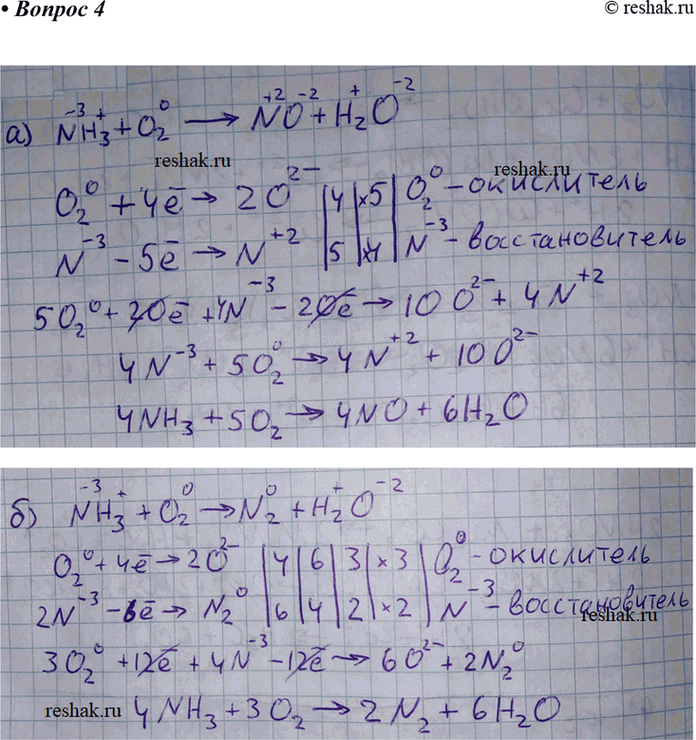 • Вопрос 4
© reshak.ru
а) N⁻³H₃⁺ + O₂⁰ → N⁺²O⁻² + H₂⁺O⁻²
reshak.ru
reshak.ru
O₂⁰ + 4ē → 2O²⁻ | 4 | ×5 | O₂⁰ - окислитель
N⁻³ - 5ē → N⁺² | 5 | ×4 | N⁻³ - восстановитель
5O₂⁰ + 20ē + 4N⁻³ - 20ē → 10O²⁻ + 4N⁺²
4N⁻³ + 5O₂⁰ → 4N⁺² + 10O²⁻
4NH₃ + 5O₂ → 4NO + 6H₂O
б) N⁻³H₃⁺ + O₂⁰ → N₂⁰ + H₂⁺O⁻²
O₂⁰ + 4ē → 2O²⁻ | 4 | 6 | 3 | ×3 | O₂⁰ - окислитель
2N⁻³ - 6ē → N₂⁰ | 6 | 4 | 2 | ×2 | N⁻³ - восстановитель
reshak.ru
3O₂⁰ + 12ē + 4N⁻³ - 12ē → 6O²⁻ + 2N₂⁰
reshak.ru 4NH₃ + 3O₂ → 2N₂ + 6H₂O